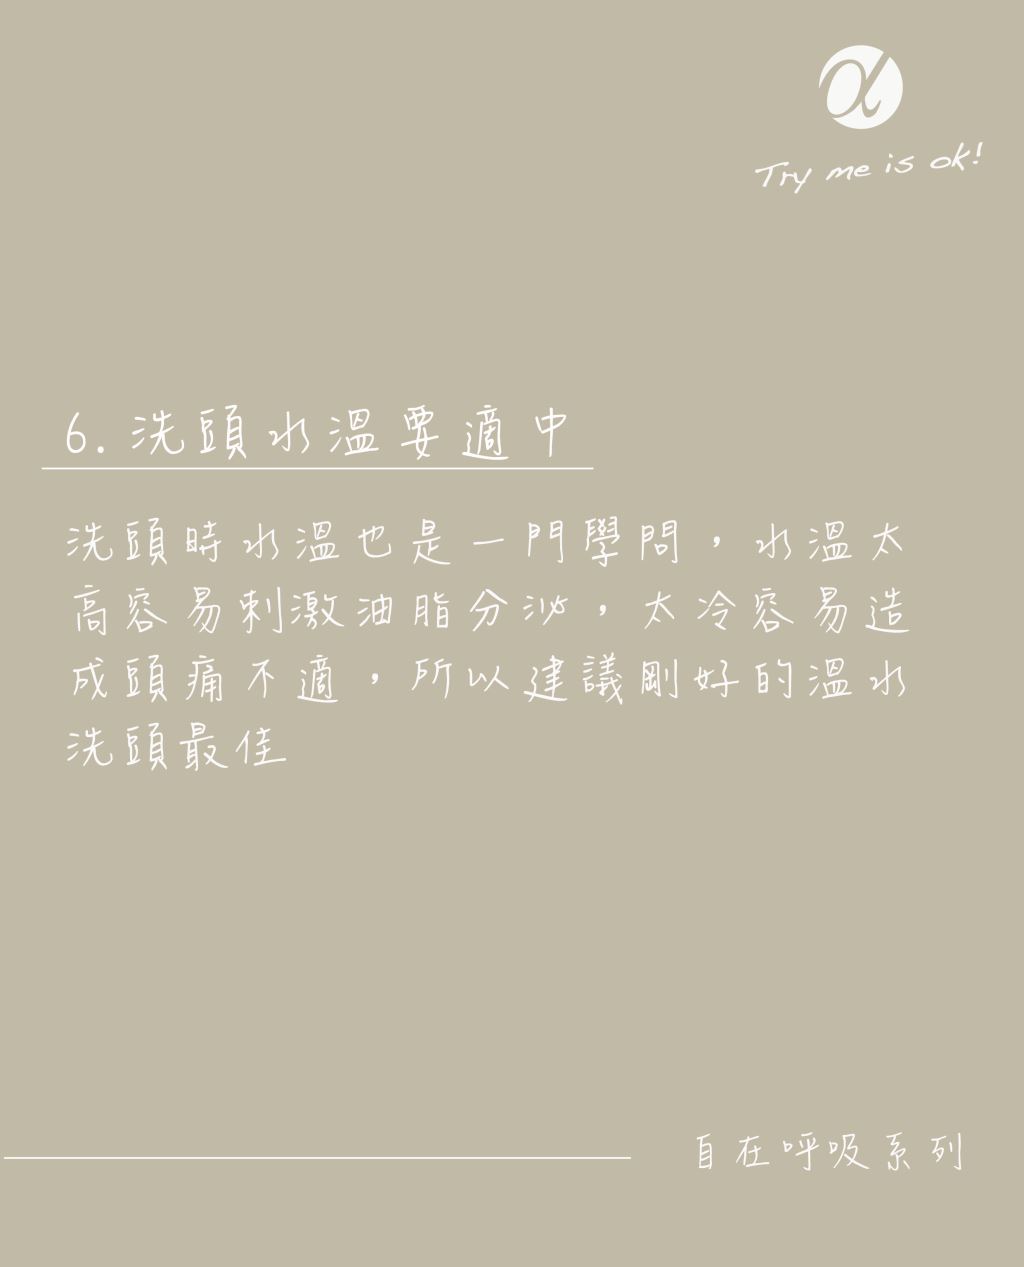 α
Try me is ok!
6.洗頭水溫要適中
洗頭時水溫也是一門學問，水溫太
高容易刺激油脂分泌，太冷容易造
成頭痛不適，所以建議剛好的溫水
洗頭最佳
自在呼吸系列